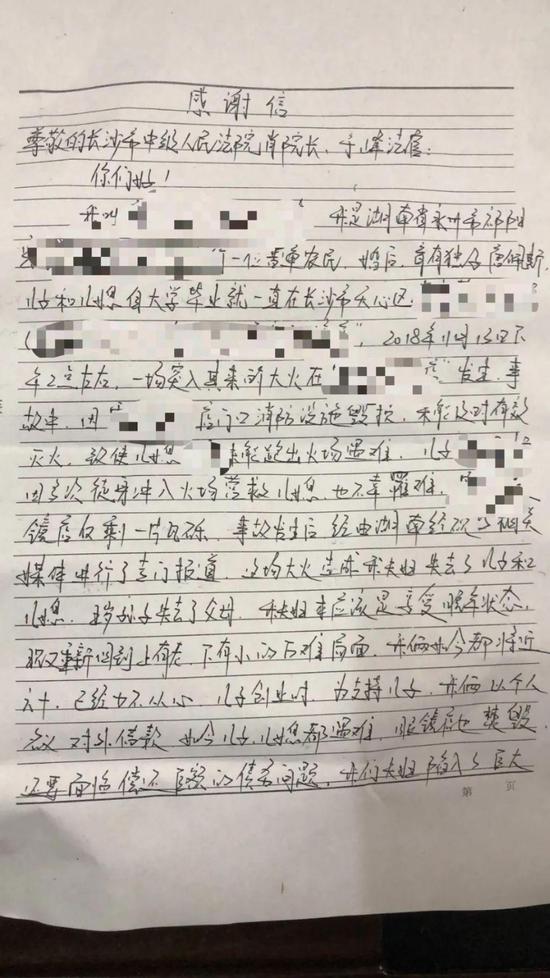 感谢信
尊敬的长沙市中级人民法院肖院长、于峰法官:
你们好!
我叫 我是湖南省永州市祁阳
一位普单农民,婚后,育有独子唐佩斯,
儿子和儿媳自大学毕业就一直在长沙市天心区
2018年11月13日下
午2点左右,一场突入其来的大火在 发生,事
故中,因 店门口消防设施毁损,未能及时有效
灭火,致使儿媳 未能跑出火场遇难,儿子
因多次徒身冲入火场营救儿媳,也不幸罹难,
镜店仅剩一片瓦砾,事故发生后经由湖南经视等相关
媒体进行了专门报道,这场大火造成我夫妇失去了儿子和
儿媳,孙子失去了父母,我夫妇本应该是享受晚年状态,
现又重新回到上有老、下有小的两难局面,我俩如今都将近
六十,已经力不从心,儿子创业时,为支持儿子,我俩以个人
名义对外借款,如今儿子、儿媳都遇难,眼镜店也焚毁,
还要面临偿还巨额的债务问题,我们夫妇陷入了巨大
第 页